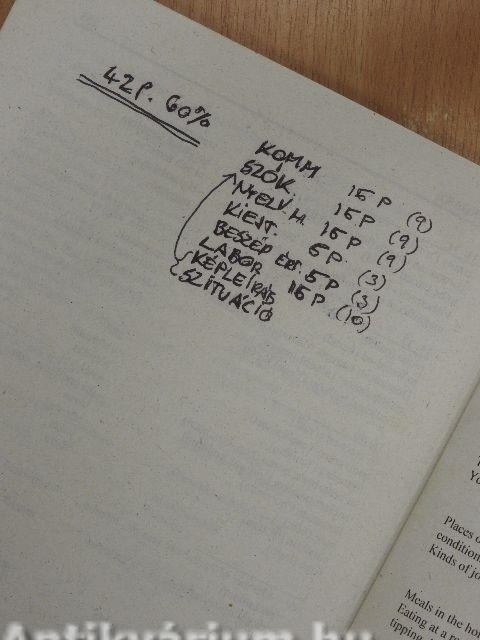 42 P. 60%
KOMM 15 P (9)
SZÓK. 15 P (9)
NYELV.H. 15 P (9)
KIEJT. 5 P. (3)
BESZÉD ÉRT. 5 P (3)
LABOR 15 P (10)
KÉPLEÍRÁS
SZITUÁCIÓ
Places o
condition
Kinds of jo
Meals in the ho
Eating at a re
tipping,
Antikvárium.hu